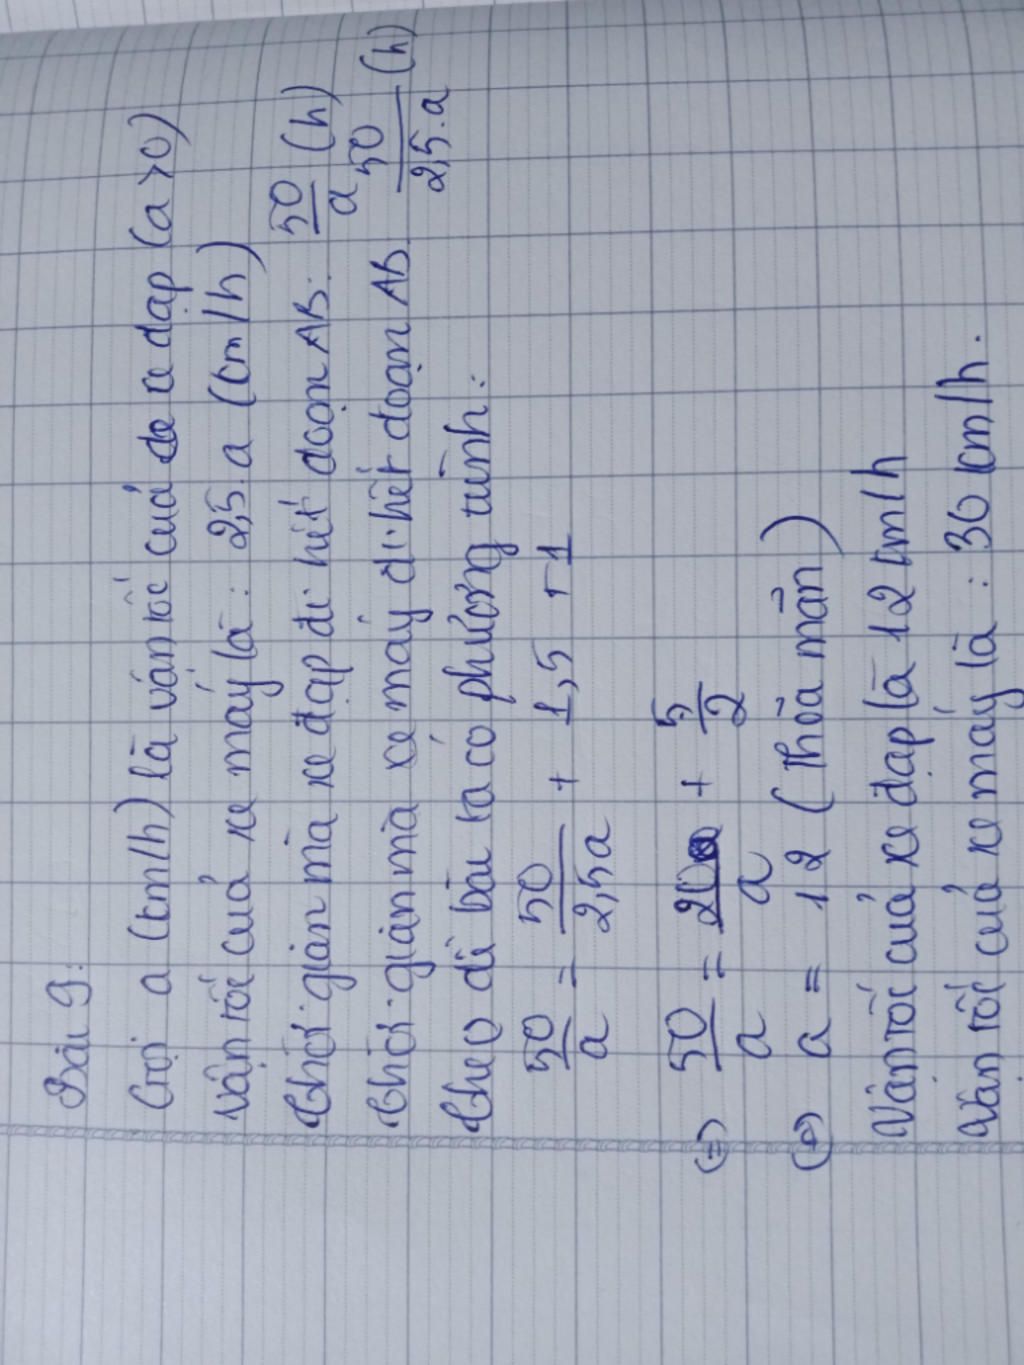 Bài 9:
Gọi a (km/h) là vận tốc của xe đạp (a > 0)
Vận tốc của xe máy là : 2,5.a (km/h)
Thời gian mà xe đạp đi hết đoạn AB: 50/a (h)
Thời gian mà xe máy đi hết đoạn AB 50/2,5.a (h)
Theo đề bài ta có phương trình:
50/a = 50/2,5a + 1,5 + 1
(=) 50/a = 20/a + 5/2
(=) a = 12 (thỏa mãn)
Vận tốc của xe đạp là 12 km/h
Vận tốc của xe máy là : 30 km/h.